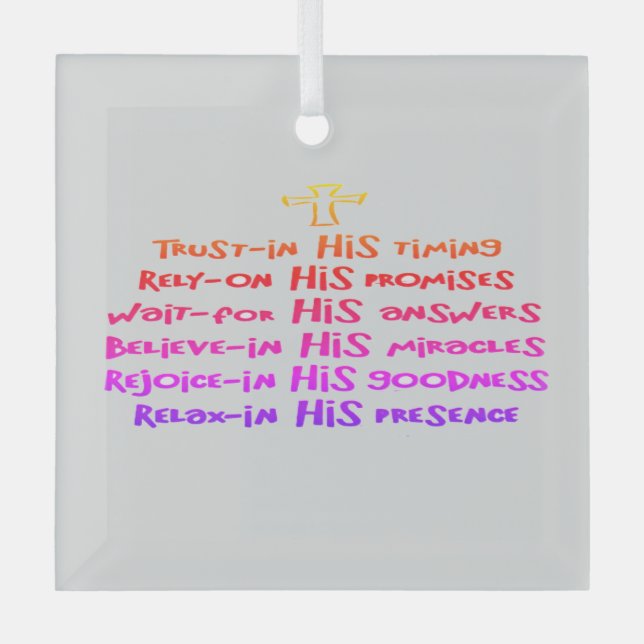 TRUST-iN HiS TiMiNG
RELY-ON HiS PROMiSES
WAiT-FOR HiS ANSWERS
BELiEVE-iN HiS MiRACLES
REJOiCE-iN HiS GOODNESS
RELAX-iN HiS PRESENCE